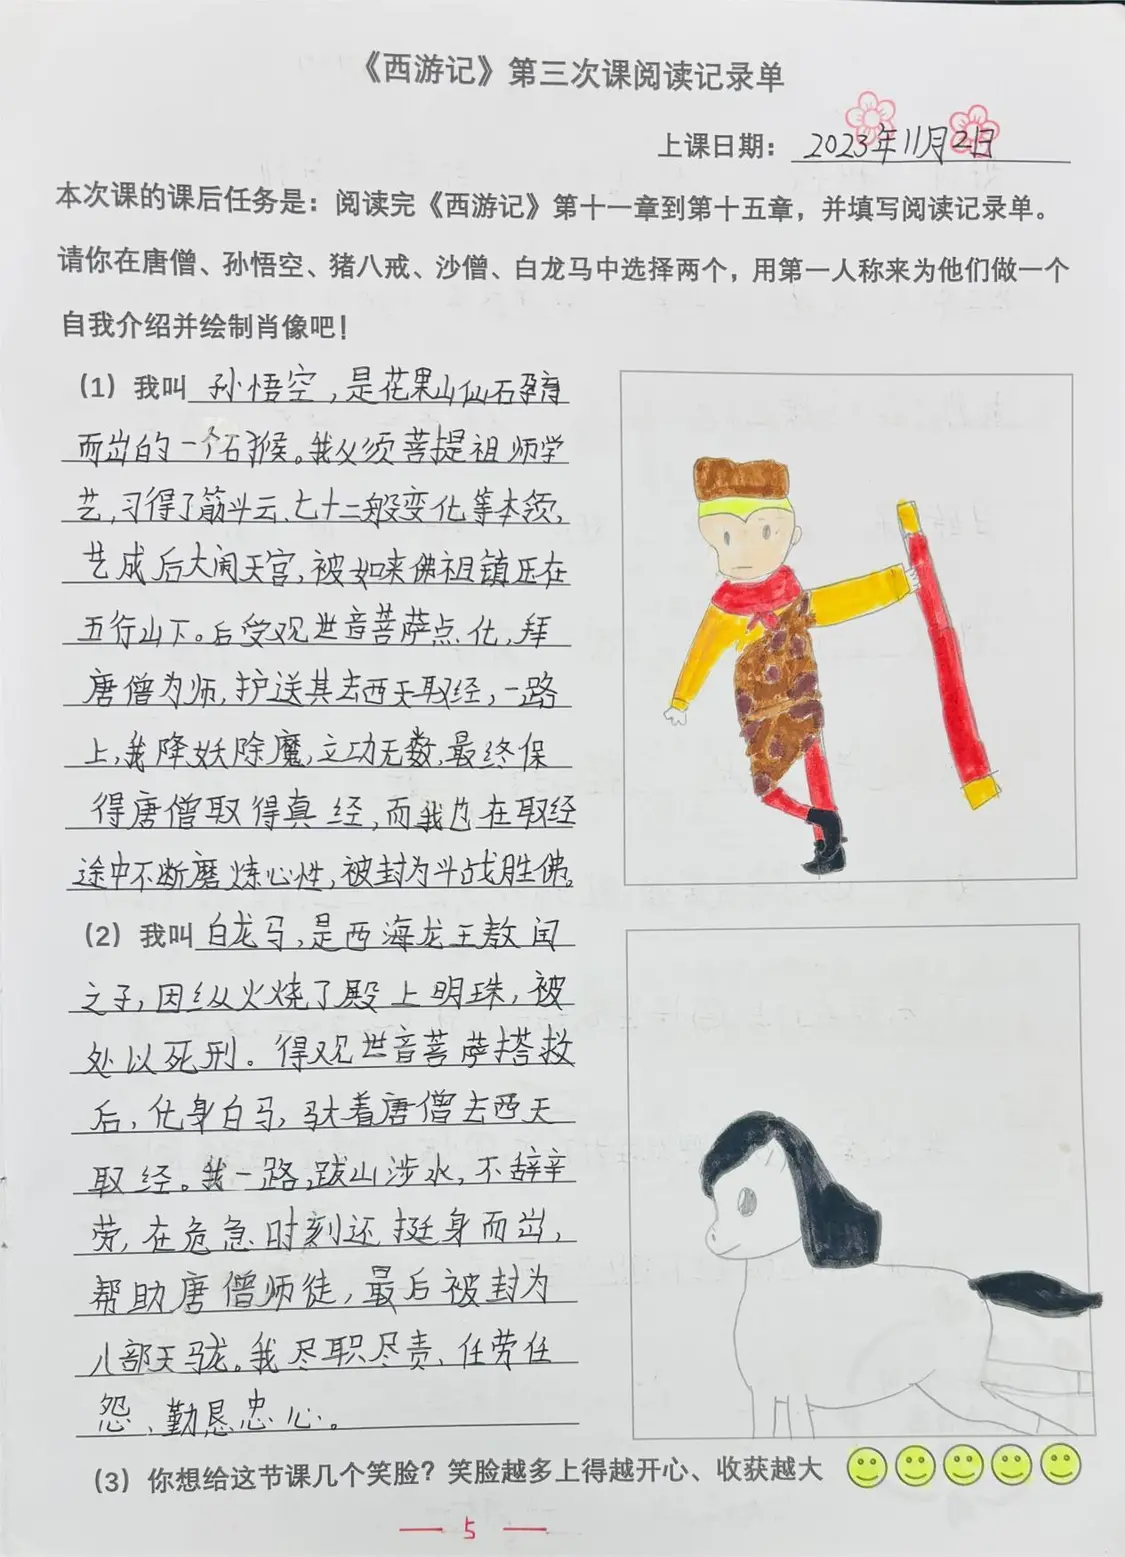 《西游记》第三次课阅读记录单
上课日期：2023年11月2日
本次课的课后任务是：阅读完《西游记》第十一章到第十五章，并填写阅读记录单。
请你在唐僧、孙悟空、猪八戒、沙僧、白龙马中选择两个，用第一人称来为他们做一个
自我介绍并绘制肖像吧！
（1）我叫孙悟空，是花果山仙石孕育
而出的一个石猴。我从须菩提祖师学
艺，习得了筋斗云、七十二般变化等本领，
艺成后大闹天宫，被如来佛祖镇压在
五行山下。后受观世音菩萨点化，拜
唐僧为师，护送其去西天取经，一路
上，我降妖除魔，立功无数，最终保
得唐僧取得真经，而我也在取经
途中不断磨炼心性，被封为斗战胜佛。
（2）我叫白龙马，是西海龙王敖闰
之子，因纵火烧了殿上明珠，被
处以死刑。得观世音菩萨搭救
后，化身白马，驮着唐僧去西天
取经。我一路，跋山涉水，不辞辛
劳，在危急时刻还挺身而出，
帮助唐僧师徒，最后被封为
八部天龙。我尽职尽责、任劳任
怨、勤恳忠心。
（3）你想给这节课几个笑脸？笑脸越多上得越开心、收获越大
— 5 —